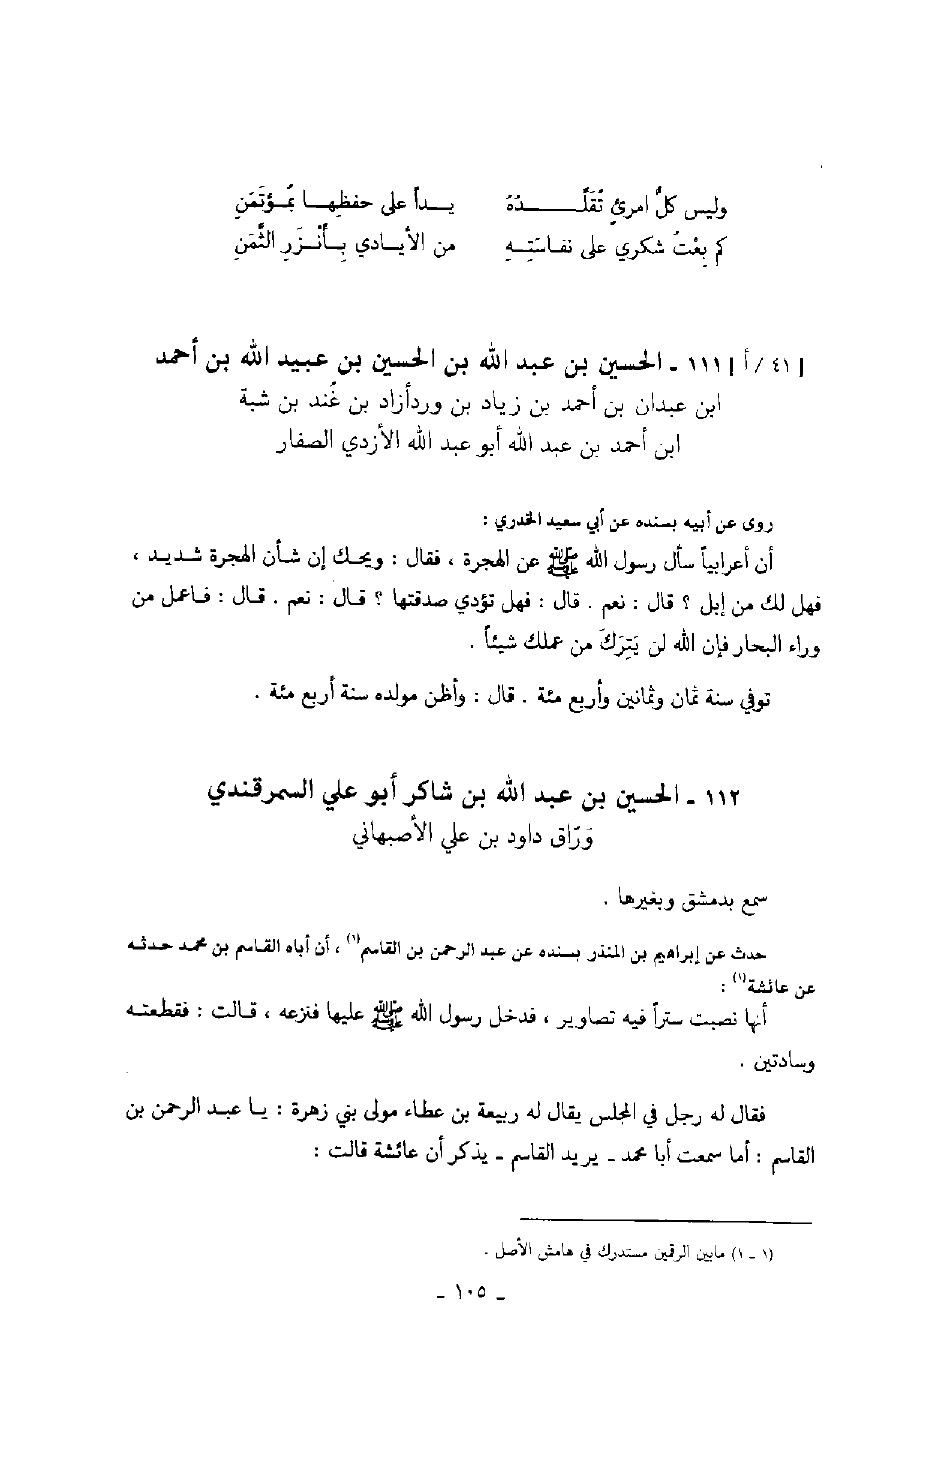 وليس كلُّ امرئٍ تُقَلَّـــــدُهُ يــداً على حفظهــا بمُـؤتَمَنِ
كم بِعْتُ شكري على نفاسَتِــهِ من الأيـادي بِـأَنْـزَرِ الثَّمَنِ
[٤١/أ] ١١١ ـ الحسين بن عبد الله بن الحسين بن عبيد الله بن أحمد
ابن عبدان بن أحمد بن زياد بن وردأزاد بن غُند بن شبة
ابن أحمد بن عبد الله أبو عبد الله الأزدي الصفار
روى عن أبيه بسنده عن أبي سعيد الخدري :
أن أعرابياً سأل رسول الله ﷺ عن الهجرة ، فقال : ويحك إن شأن الهجرة شديد ،
فهل لك من إبل ؟ قال : نعم . قال : فهل تؤدي صدقتها ؟ قال : نعم . قال : فاعمل من
وراء البحار فإن الله لن يَتِرَكَ من عملك شيئاً .
توفي سنة ثمان وثمانين وأربع مئة . قال : وأظن مولده سنة أربع مئة .
١١٢ ـ الحسين بن عبد الله بن شاكر أبو علي السمرقندي
وَرّاق داود بن علي الأصبهاني
سمع بدمشق وبغيرها .
حدث عن إبراهيم بن المنذر بسنده عن عبد الرحمن بن القاسم(١) ، أن أباه القاسم بن محمد حدثه
عن عائشة(١) :
أنها نصبت ستراً فيه تصاوير ، فدخل رسول الله ﷺ عليها فنزعه ، قالت : فقطعته
وسادتين .
فقال له رجل في المجلس يقال له ربيعة بن عطاء مولى بني زهرة : يا عبد الرحمن بن
القاسم : أما سمعت أبا محمد ـ يريد القاسم ـ يذكر أن عائشة قالت :
(١ ـ ١) مابين الرقمين مستدرك في هامش الأصل .
ـ ١٠٥ ـ